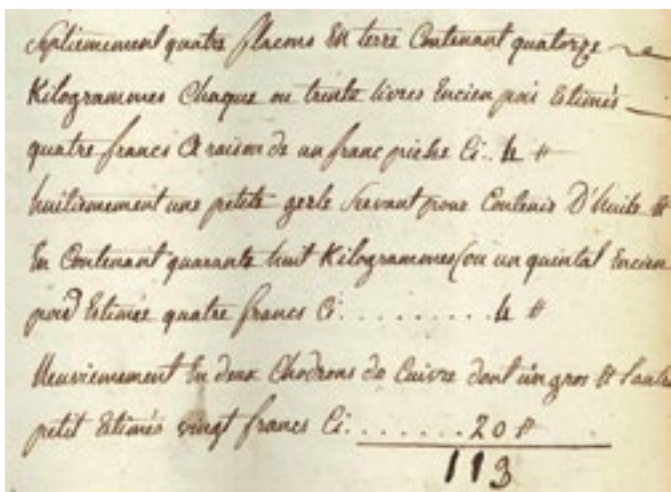 Septiemement quatre flacons En terre Contenant quatorze
Kilogrammes Chaque ou trente livres Encien pois Estimés
quatre francs a raison de un franc pieche Ci.. 4 #
huitiemement une petite gerle Servant pour Contenir D'huile #
En Contenant quarante huit Kilogrammes (ou un quintal Encien
poid Estimée quatre francs Ci. . . . . . . . . . 4 #
Neuviemement En deux Chodrons de Cuivre dont un gros Et l'autre
petit Estimés vingt francs Ci. . . . . . . 20 #
113